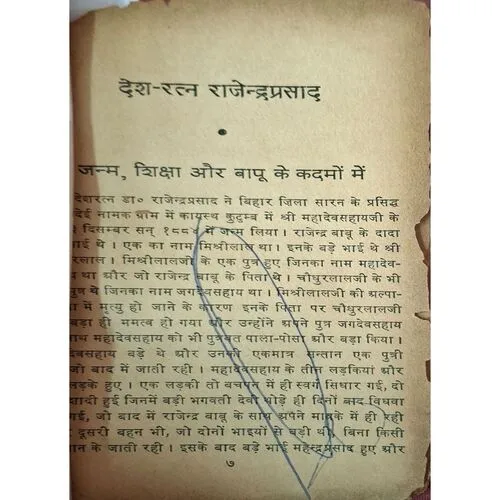 देश-रत्न राजेन्द्रप्रसाद
जन्म, शिक्षा और बापू के कदमों में
देशरत्न डा० राजेन्द्रप्रसाद ने बिहार ज़िला सारन के प्रसिद्ध
देई नामक ग्राम में कायस्थ कुटुम्ब में श्री महादेवसहायजी के
दिसम्बर सन् १८८४ में जन्म लिया। राजेन्द्र बाबू के दादा
थे। एक का नाम मिश्रीलाल था। इनके बड़े भाई थे श्री
रलाल। मिश्रीलालजी के एक पुत्र हुए जिनका नाम महादेव-
था और जो राजेन्द्र बाबू के पिता थे। चौधुरलालजी के भी
पुत्र थे जिनका नाम जगदेवसहाय था। मिश्रीलालजी की अल्पा-
में मृत्यु हो जाने के कारण इनके पिता पर चौधुरलालजी
बड़ा ही ममत्व हो गया और उन्होंने अपने पुत्र जगदेवसहाय
साथ महादेवसहाय को भी पुत्रवत पाला-पोसा और बड़ा किया।
देवसहाय बड़े थे और उनकी एकमात्र सन्तान एक पुत्री
जो बाद में जाती रही। महादेवसहाय के तीन लड़कियां और
लड़के हुए। एक लड़की तो बचपन में ही स्वर्ग सिधार गई, दो
शादी हुई जिनमें बड़ी भगवती देवी थोड़े ही दिनों बाद विधवा
गई, जो बाद में राजेन्द्र बाबू के साथ अपने मायके में ही रही
दूसरी बहन भी, जो दोनों भाइयों से बड़ी थी, बिना किसी
के जाती रही। इसके बाद बड़े भाई महेन्द्रप्रसाद हुए और
७